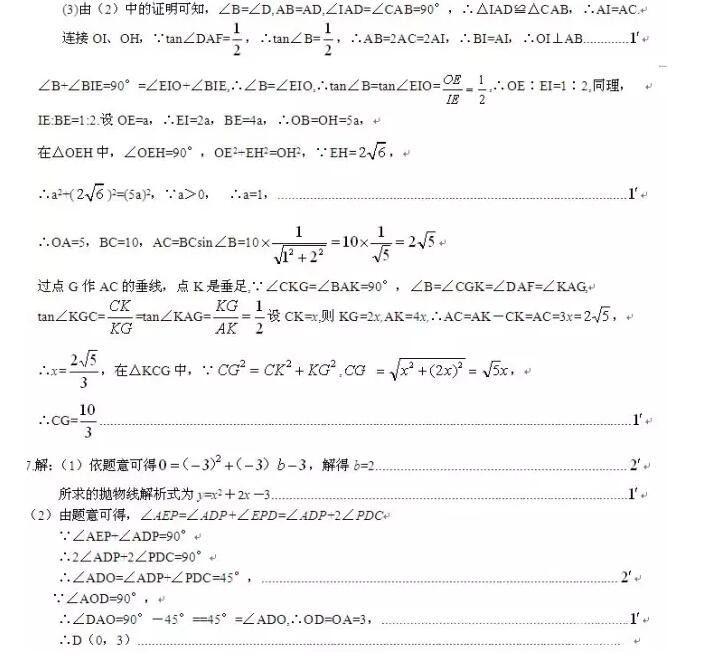 (3)由（2）中的证明可知，∠B=∠D,AB=AD,∠IAD=∠CAB=90°，∴△IAD≌△CAB，∴AI=AC.
连接 OI、OH，∵tan∠DAF=1/2，∴tan∠B=1/2，∴AB=2AC=2AI，∴BI=AI，∴OI⊥AB............1′
∠B+∠BIE=90°=∠EIO+∠BIE,∴∠B=∠EIO,∴tan∠B=tan∠EIO=OE/IE=1/2,∴OE∶EI=1∶2,同理，
IE:BE=1:2.设 OE=a，∴EI=2a，BE=4a，∴OB=OH=5a，
在△OEH 中，∠OEH=90°，OE²+EH²=OH²，∵EH=2√6，
∴a²+(2√6)²=(5a)²，∵a＞0， ∴a=1，............1′
∴OA=5，BC=10，AC=BCsin∠B=10×1/√(1²+2²)=10×1/√5=2√5
过点 G 作 AC 的垂线，点 K 是垂足,∵∠CKG=∠BAK=90°，∠B=∠CGK=∠DAF=∠KAG,
tan∠KGC=CK/KG=tan∠KAG=KG/AK=1/2设 CK=x,则 KG=2x,AK=4x,∴AC=AK－CK=AC=3x=2√5，
∴x=2√5/3，在△KCG 中，∵CG²=CK²+KG²,CG =√(x²+(2x)²)=√5x，
∴CG=10/3............1′
7.解:（1）依题意可得0=(−3)²+(−3) b−3，解得 b=2............2′
所求的抛物线解析式为 y=x²＋2x－3............1′
（2）由题意可得，∠AEP=∠ADP+∠EPD=∠ADP+2∠PDC
∵∠AEP+∠ADP=90°
∴2∠ADP+2∠PDC=90°
∴∠ADO=∠ADP+∠PDC=45°，............2′
∵∠AOD=90°，
∴∠DAO=90°－45°==45°=∠ADO,∴OD=OA=3，............1′
∴D（0，3）............